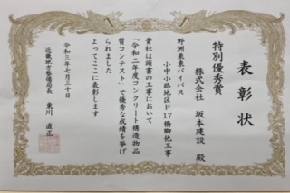 表彰状
特別優秀賞
株式会社 坂本建設 殿
野洲栗東バイパス
小中小路地区ドリ橋脚他工事
貴社は頭書の工事において
「令和二年度コンクリート構造物品
質コンテスト」で優秀な成績を挙げ
られました
よってここに表彰します
令和三年七月三十日
近畿地方整備局長 東川 直正